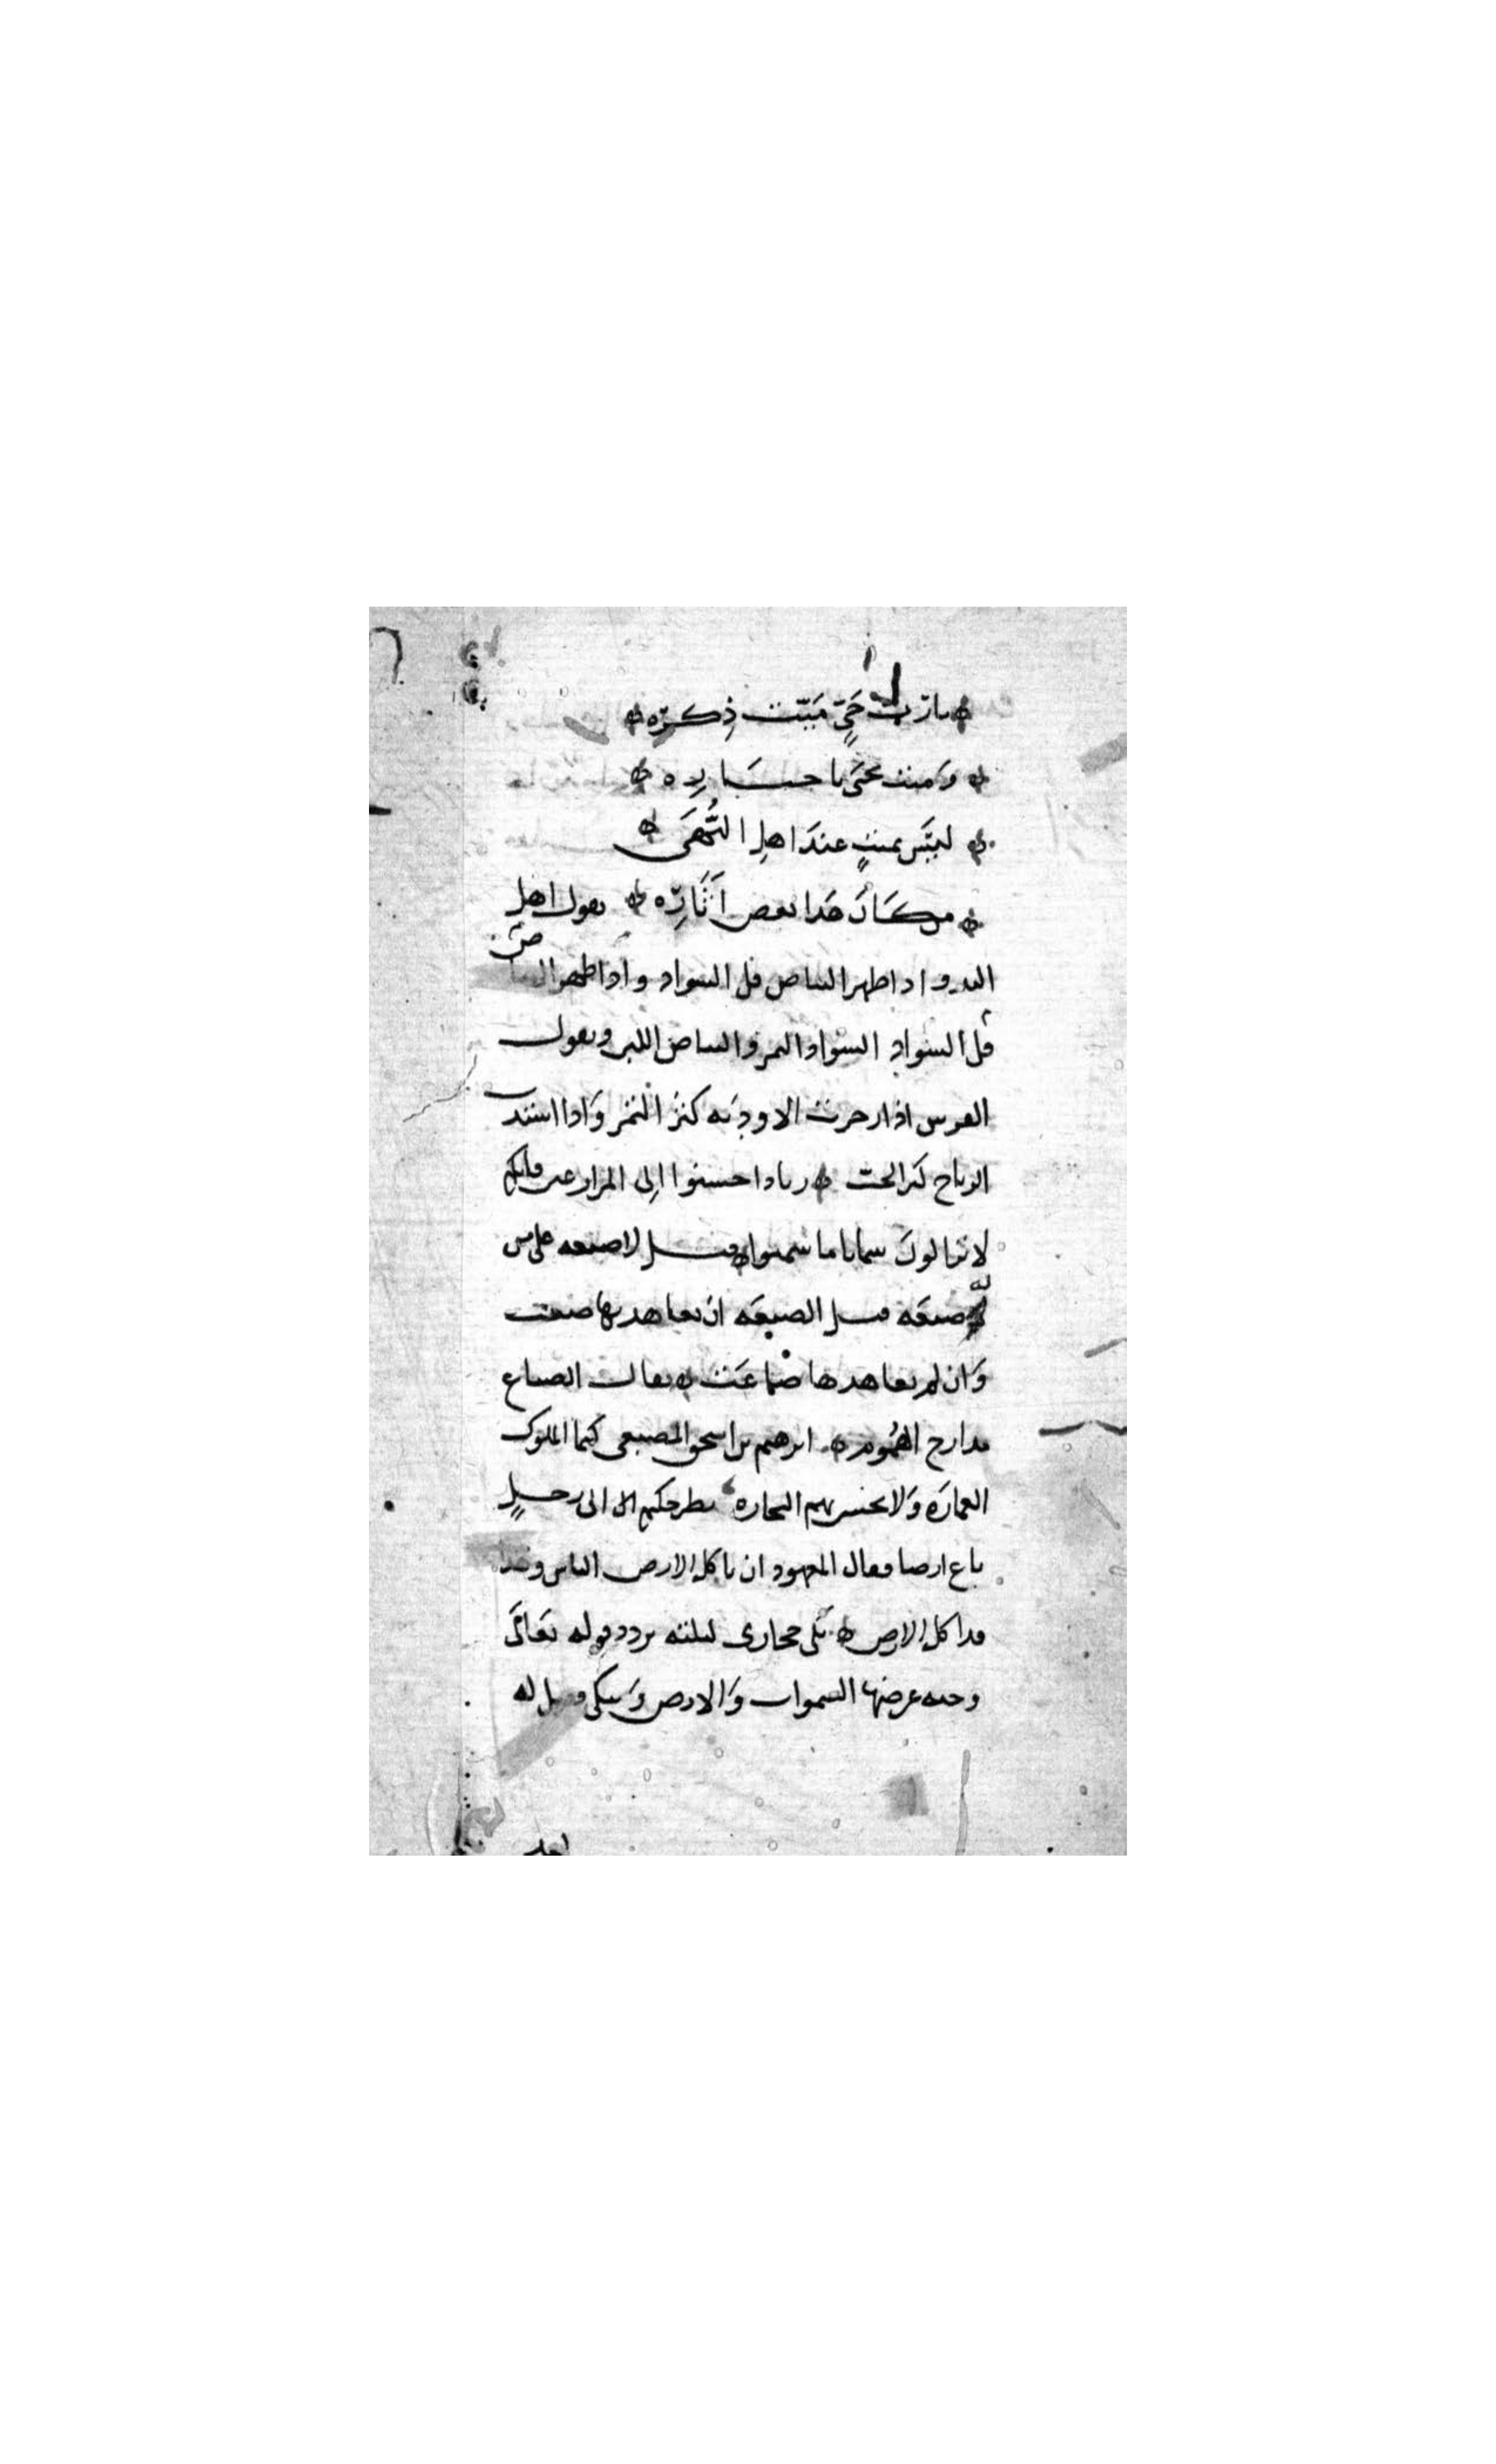 يا رُبَّ حَيٍّ مَيّت ذِكرُه
وَميت يحيَى باخبَارِه
ليسَ بميتٍ عندَ اهلِ النُّهَى
من كَانَ هَذا بعض آثَارِه يقول اهل
البدو اذا ظهر البياض قل السواد واذا ظهر السواد
قل البياض السواد التمر والبياض اللبن ويقول
الفرس اذا زخرت الاودِيَه كثرَ الثمر وَاذا اشتدت
الرياح كثر الحبّ زياد احسنوا الِى المزارعين فانكم
لا تزالونَ سمانا ما سمنوا قيل لا ضيعه على من
لَه ضيعَه قيل الضيعَه ان تعاهدتها ضعت
وَان لم تعاهدها ضاعَت يقال الضياع
مدارج الهُموم ابرهيم بن اسحق المصعبي كيما الملوك
العمارَه وَلا يحسن بهم التجاره نظر حكيم الى رجلٍ
باع ارضا فقال المعهود ان تاكل الارض الناس وهذا
قد اكل الارض بقى حجازى ليلته يردد قوله تعَالَى
وجنه عرضها السموات وَالارض وَيبكى فقيل له